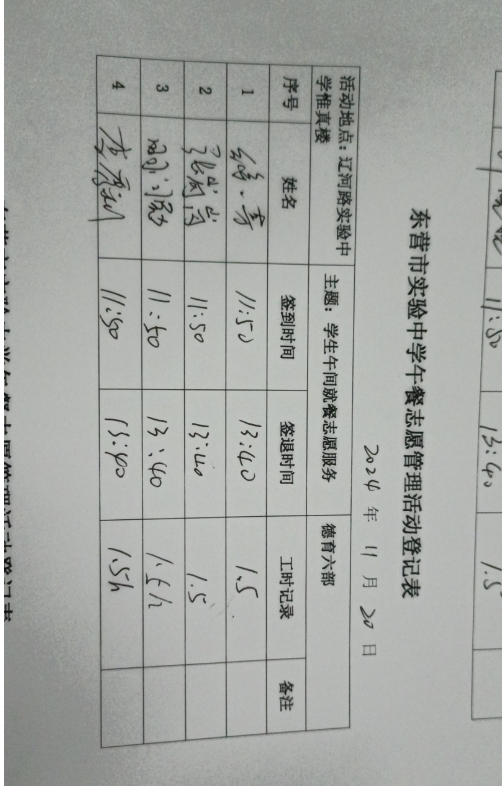 11:50 13:40 1.5
东营市实验中学午餐志愿管理活动登记表
2024 年 11 月 20 日
活动地点：辽河路实验中学惟真楼 主题：学生午间就餐志愿服务 德育六部
序号 姓名 签到时间 签退时间 工时记录 备注
1 11:50 13:40 1.5
2 11:50 13:40 1.5
3 11:50 13:40 1.5h
4 11:50 13:40 1.5h